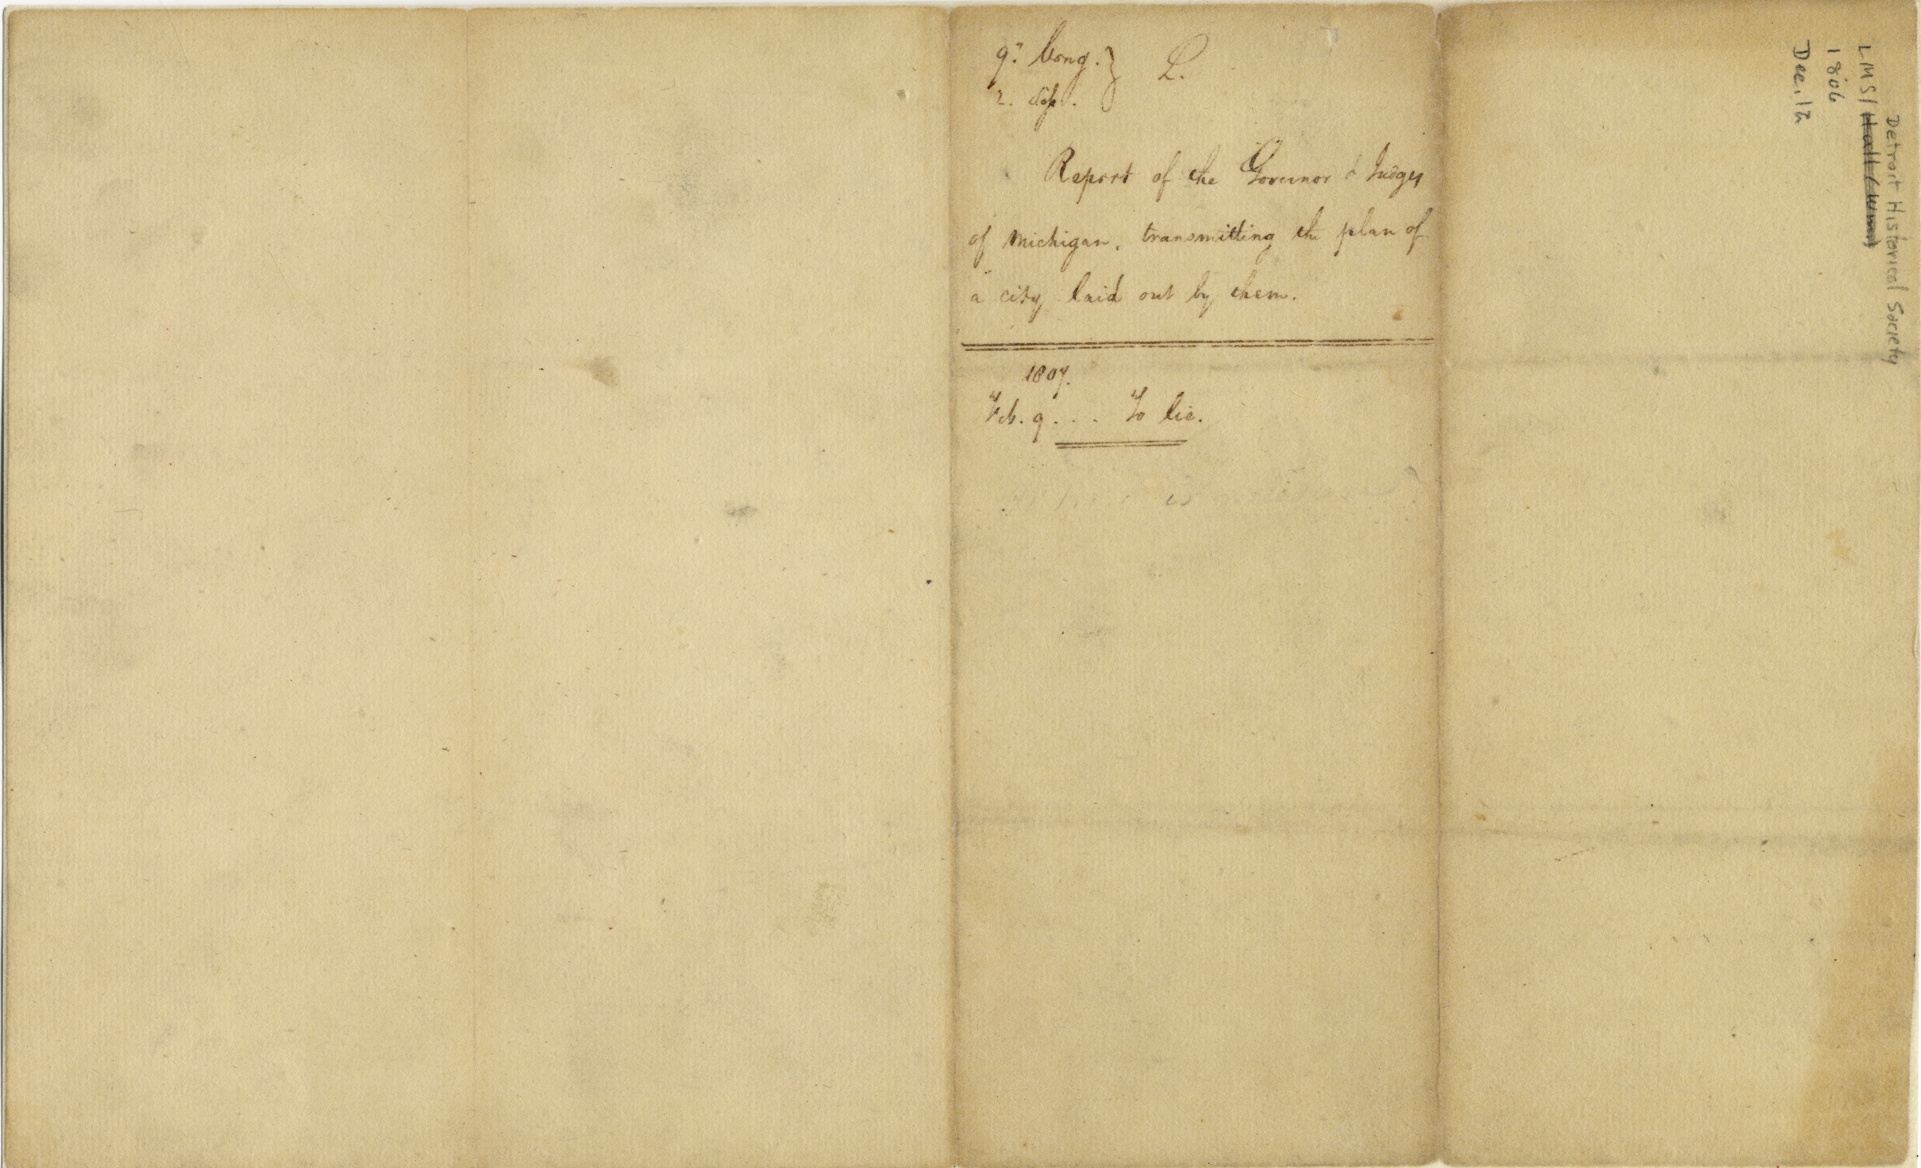 9th Cong. } L.
2. Sess.
Report of the Governor & Judges
of Michigan, transmitting the plan of
a city laid out by them.
1807.
Feb. 9 . . . To lie.
Detroit Historical Society
LMS/
1806
Dec. 12